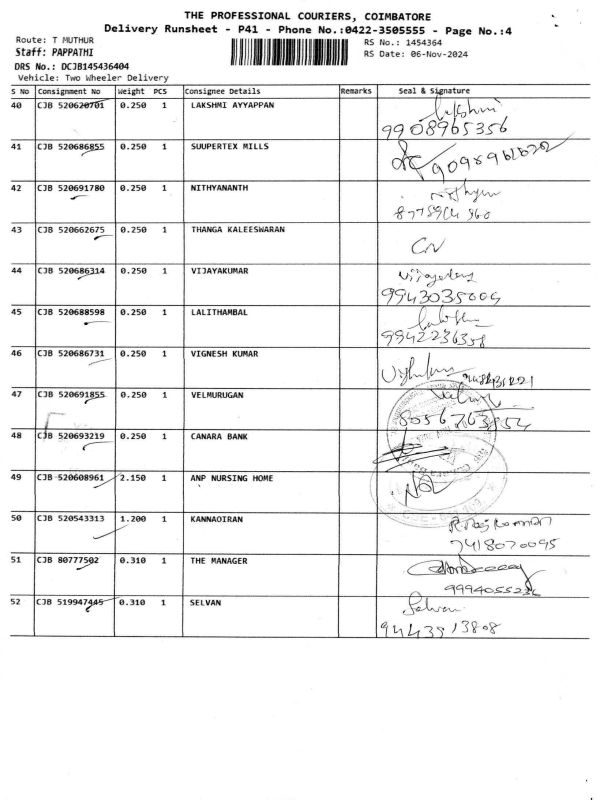 THE PROFESSIONAL COURIERS, COIMBATORE
Delivery Runsheet - P41 - Phone No.:0422-3505555 - Page No.:4
Route: T MUTHUR
RS No.: 1454364
Staff: PAPPATHI
RS Date: 06-Nov-2024
DRS No.: DCJB145436404
Vehicle: Two Wheeler Delivery
S No Consignment No Weight PCS Consignee Details Remarks Seal & Signature
40 CJB 520620701 0.250 1 LAKSHMI AYYAPPAN Lakshmi
9908965356
41 CJB 520686855 0.250 1 SUUPERTEX MILLS
42 CJB 520691780 0.250 1 NITHYANANTH
43 CJB 520662675 0.250 1 THANGA KALEESWARAN
44 CJB 520686314 0.250 1 VIJAYAKUMAR
9943035004
45 CJB 520688598 0.250 1 LALITHAMBAL
9942236358
46 CJB 520686731 0.250 1 VIGNESH KUMAR
47 CJB 520691855 0.250 1 VELMURUGAN
48 CJB 520693219 0.250 1 CANARA BANK
49 CJB 520608961 2.150 1 ANP NURSING HOME
50 CJB 520543313 1.200 1 KANNAOIRAN
7418070095
51 CJB 80777502 0.310 1 THE MANAGER
52 CJB 519947445 0.310 1 SELVAN Selvan
9443913808